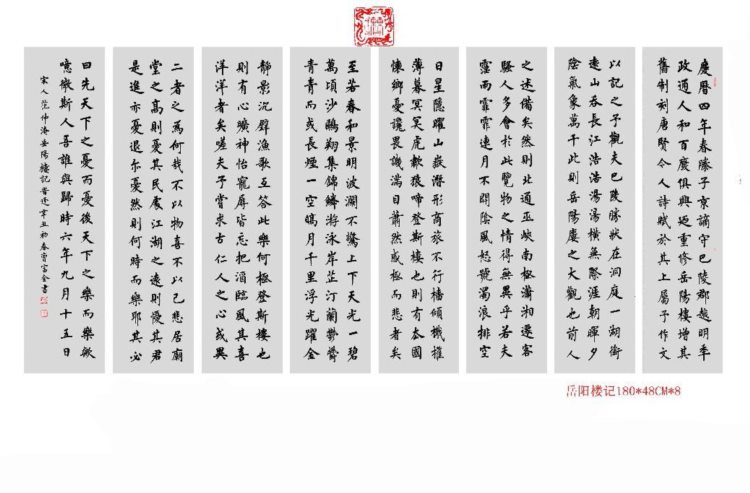 慶曆四年春滕子京謫守巴陵郡越明年
政通人和百廢俱興廼重修岳陽樓增其
舊制刻唐賢今人詩賦於其上屬予作文
以記之予觀夫巴陵勝狀在洞庭一湖銜
遠山吞長江浩浩湯湯橫無際涯朝暉夕
陰氣象萬千此則岳陽樓之大觀也前人
之述備矣然則北通巫峽南極瀟湘遷客
騷人多會於此覽物之情得無異乎若夫
霪雨霏霏連月不開陰風怒號濁浪排空
日星隱躍山嶽潛形商旅不行檣傾檝摧
薄暮冥冥虎歗猿啼登斯樓也則有去國
懷鄉憂讒畏譏滿目蕭然感極而悲者矣
至若春和景明波瀾不驚上下天光一碧
萬頃沙鷗翔集錦鱗游泳岸芷汀蘭鬱鬱
青青而或長煙一空皓月千里浮光躍金
靜影沉璧漁歌互答此樂何極登斯樓也
則有心曠神怡寵辱皆忘把酒臨風其喜
洋洋者矣嗟夫予嘗求古仁人之心或異
二者之為何哉不以物喜不以己悲居廟
堂之高則憂其民處江湖之遠則憂其君
是進亦憂退亦憂然則何時而樂耶其必
曰先天下之憂而憂後天下之樂而樂歟
噫微斯人吾誰與歸時六年九月十五日
宋人范仲淹岳陽樓記辛丑初春書
岳阳楼记180*48CM*8